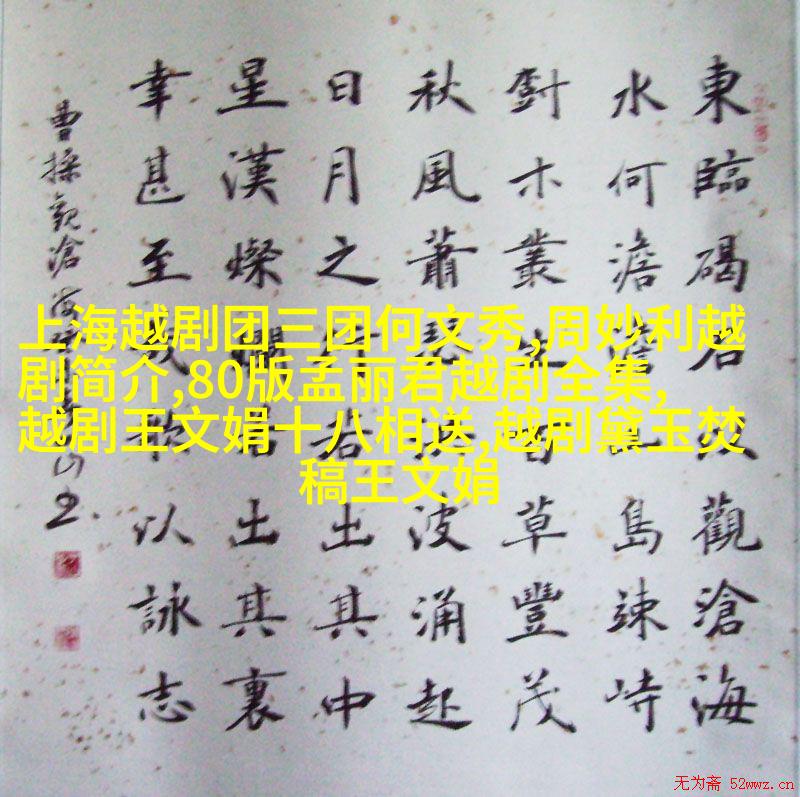 上海越剧团三团何文秀,周妙利越
剧简介,80版孟丽君越剧全集,
越剧王文娟十八相送,越剧黛玉焚
稿王文娟
東臨碣石以觀滄海
水何澹澹山島竦峙
木叢生百草豐茂
秋風蕭瑟洪波涌起
日月之行若出其中
星漢燦爛若出其裏
幸甚至哉歌以詠志
曹操觀滄海
无为斋 52wwz.cn